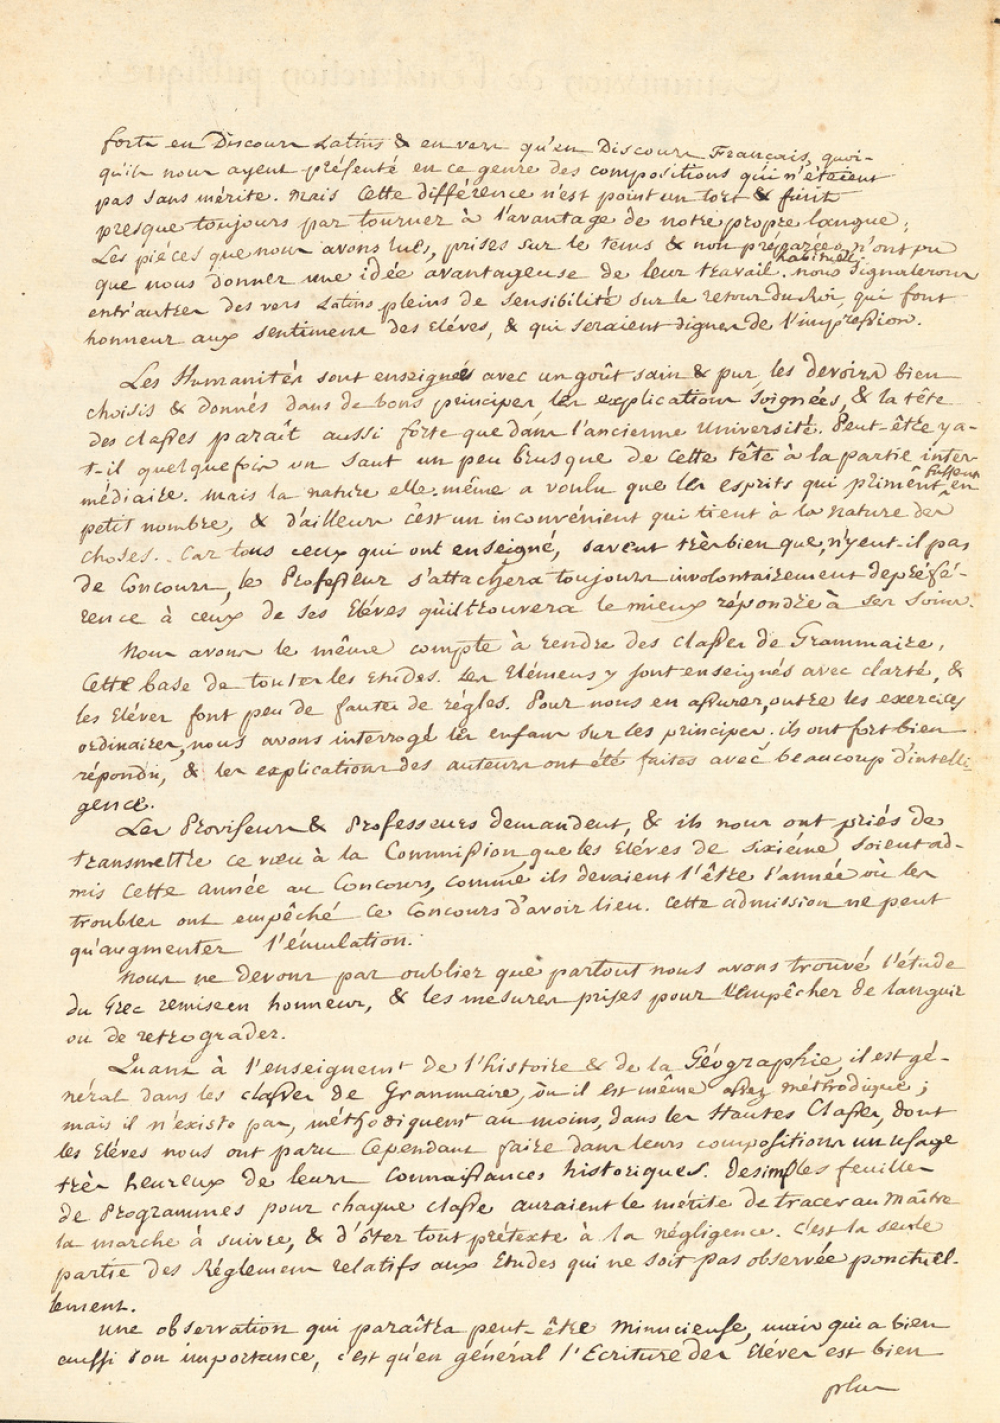 forts en Discours Latins & en vers qu'en Discours Français, quoi-
qu'ils nous ayent présenté en ce genre des compositions qui n'étaient
pas sans mérite. Mais cette différence n'est point un tort & finit
presque toujours par tourner à l'avantage de notre propre langue;
Les piéces que nous avons lues, prises sur le tems & non préparées n'ont pu
que nous donner une idée avantageuse de leur travail habituel. nous signalerons
entr'autres des vers Latins pleins de sensibilité sur le retour du Roi, qui font
honneur aux sentimens des Eléves, & qui seraient dignes de l'impression.
Les Humanités sont enseignées avec un goût sain & pur, les devoirs bien
choisis & donnés dans de bons principes, les explications soignées, & la tête
des classes paraît aussi forte que dans l'ancienne Université. Peut-être y a-
t-il quelquefois un saut un peu brusque de cette tête à la partie inter-
médiaire. Mais la nature elle-même a voulu que les esprits qui priment fussent en
petit nombre, & d'ailleurs c'est un inconvénient qui tient à la nature des
choses. Car tous ceux qui ont enseigné, savent très bien que, n'y eut-il pas
de Concours, le Professeur s'attachera toujours involontairement de préfé-
rence à ceux de ses Eléves qu'il trouvera le mieux répondre à ses soins.
Nous avons le même compte à rendre des classes de Grammaire,
Cette base de toutes les etudes. Les Elémens y sont enseignés avec clarté, &
les Eléves font peu de fautes de régles. Pour nous en assurer, outre les exercices
ordinaires, nous avons interrogé les enfans sur les principes. ils ont fort bien
répondu, & les explications des auteurs ont été faites avec beaucoup d'intelli-
gence.
Les Proviseurs & Professeurs demandent, & ils nous ont priés de
transmettre ce vœu à la Commission, que les Eléves de sixiéme soient ad-
mis cette année au Concours, comme ils devaient l'être l'année où les
troubles ont empêché ce Concours d'avoir lieu. Cette admission ne peut
qu'augmenter l'émulation.
Nous ne devons pas oublier que partout nous avons trouvé l'étude
du Grec remise en honneur, & les mesures prises pour l'empêcher de languir
ou de retrograder.
Quant à l'enseignemt de l'histoire & de la Géographie, il est gé-
néral dans les classes de Grammaire, où il est même assez méthodique;
mais il n'existe pas, méthodiquemt au moins, dans les Hautes Classes, dont
les Eléves nous ont paru cependant faire dans leurs compositions un usage
très heureux de leurs connaissances historiques. De simples feuilles
de Programmes pour chaque classe auraient le mérite de tracer au Maître
la marche à suivre, & d'ôter tout prétexte à la négligence. c'est la seule
partie des Réglemens relatifs aux Etudes qui ne soit pas observée ponctuel-
lement.
Une observation qui paraîtra peut-être minucieuse, mais qui a bien
aussi son importance, c'est qu'en général l'Ecriture des Eléves est bien
plus